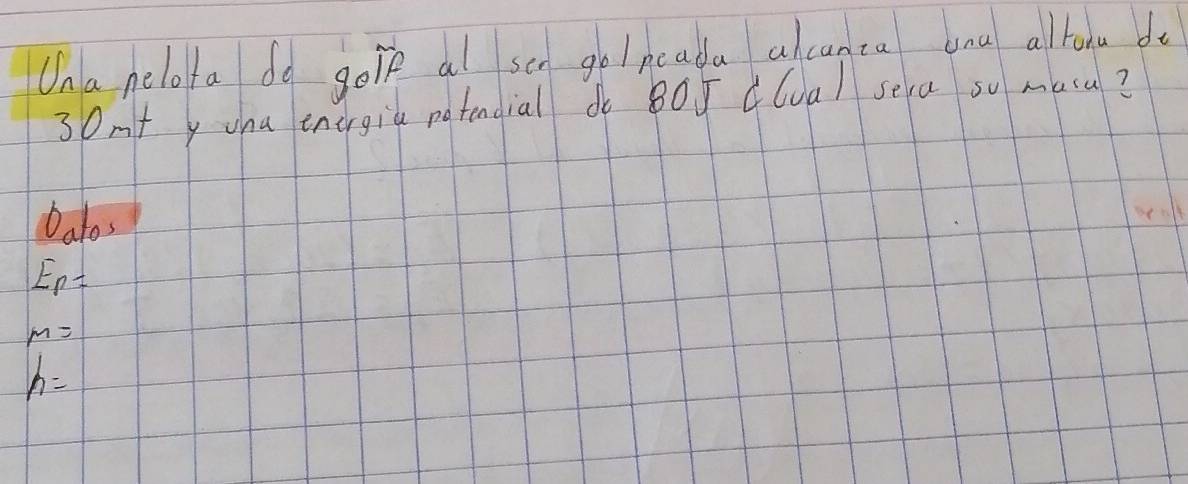 Una pelota de golf al ser golpeada alcanza una altura de
30mt y una energía potencial de 80J ¿Cual sera su masa?
Datos
Ep=
m=
h=